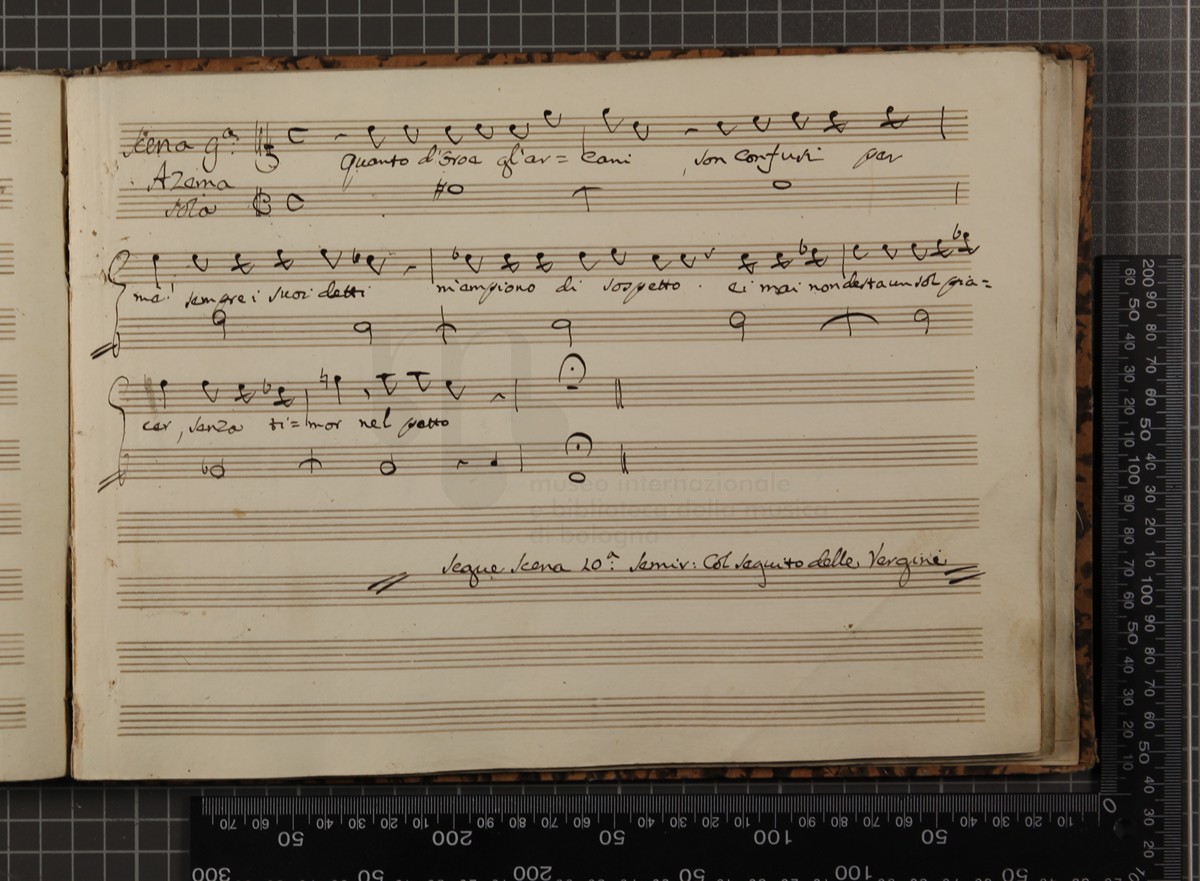 Scena 9ª
Azema
sola
quanto d'Oroe gl'ar= cani son confusi per
me! sempre i suoi detti m'empiono di sospetto. ei mai non desta un sol pia=
cer, senza ti= mor nel petto
museo internazionale
e biblioteca della musica
di bologna
Segue Scena 10ª Semir: Col seguito delle Vergini